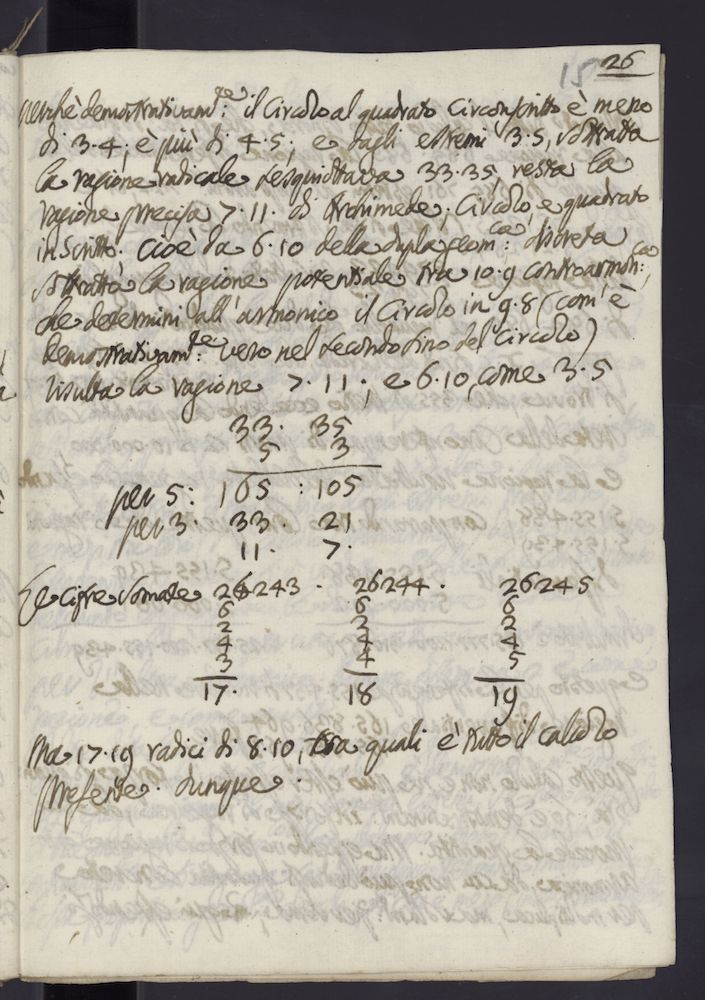 15 26
perchè demostrativam.te: il Circolo al quadrato Circonscritto è meno
di 3.4, è più di 4.5; e dagli estremi 3.5, sottratta
la ragione radicale sesquiottava 33.35, resta la
ragione precisa 7.11. di Archimede. Circolo, e quadrato
inscritto. Cioè da 6.10 della dupla geom.ca: discreta
sottratta la ragione potentiale tra 10.9 controarmon.ca:,
che determini all'armonico il Circolo in 9.8 (com'è
demostrativam.te: vero nel secondo sino del Circolo)
risulta la ragione 7.11.; e 6.10, come 3.5
33. 35
5 3
per 5: 165 : 105
per 3. 33. 21
11. 7.
Le cifre sommate 26243 . 26244 . 26245
6 6 6
2 2 2
4 4 4
3 4 5
17. 18 19
Ma 17.19 radici di 8.10, tra quali è tutto il calcolo
presente. dunque.